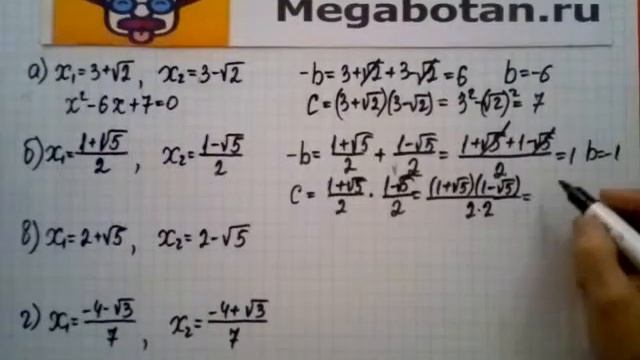 Megabotan.ru
а) x₁=3+√2, x₂=3-√2 -b=3+√2+3-√2=6 b=-6
x²-6x+7=0 C=(3+√2)(3-√2)=3²-(√2)²=7
б) x₁=(1+√5)/2, x₂=(1-√5)/2 -b=(1+√5)/2+(1-√5)/2=(1+√5+1-√5)/2=1 b=-1
C=(1+√5)/2·(1-√5)/2=(1+√5)(1-√5)/2·2=
в) x₁=2+√5, x₂=2-√5
г) x₁=(-4-√3)/7, x₂=(-4+√3)/7